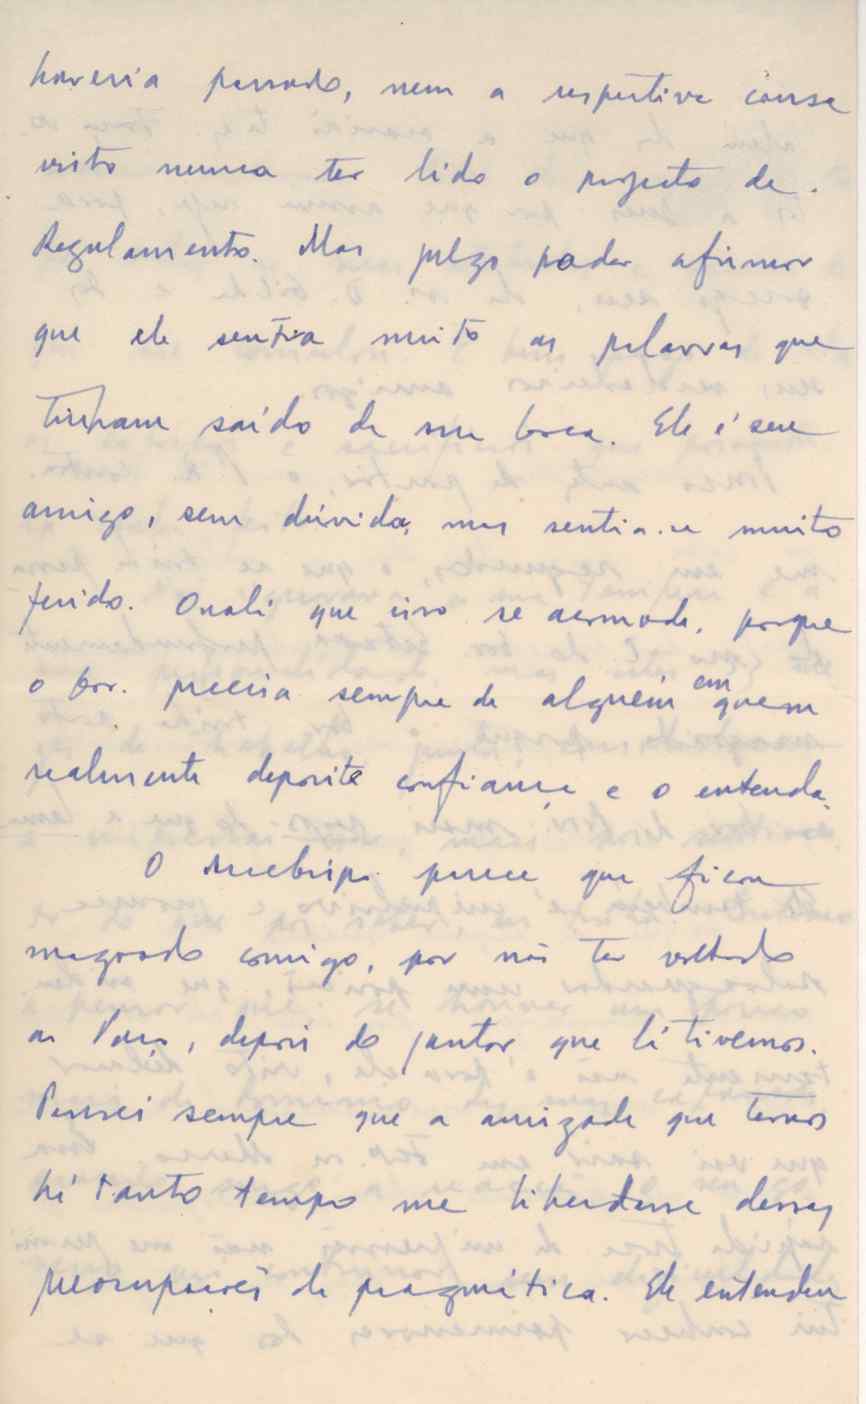 haveria passado, nem a respectiva causa
visto nunca ter lido o projecto de.
Regulamento. Mas julgo poder afirmar
que ele sentia muito as palavras que
tinham saído de sua boca. Ele é seu
amigo, sem dúvida, mas sentia-se muito
ferido. Oxalá que isso se acomode, porque
o Sor. precisa sempre de alguém em quem
realmente deposite confiança e o entenda.
O parece que ficou
magoado comigo, por não ter voltado
ao Paço, depois do jantar que lá tivemos.
Pensei sempre que a amizade que temos
há tanto tempo me libertasse dessas
preocupações de pragmática. Ele entendeu